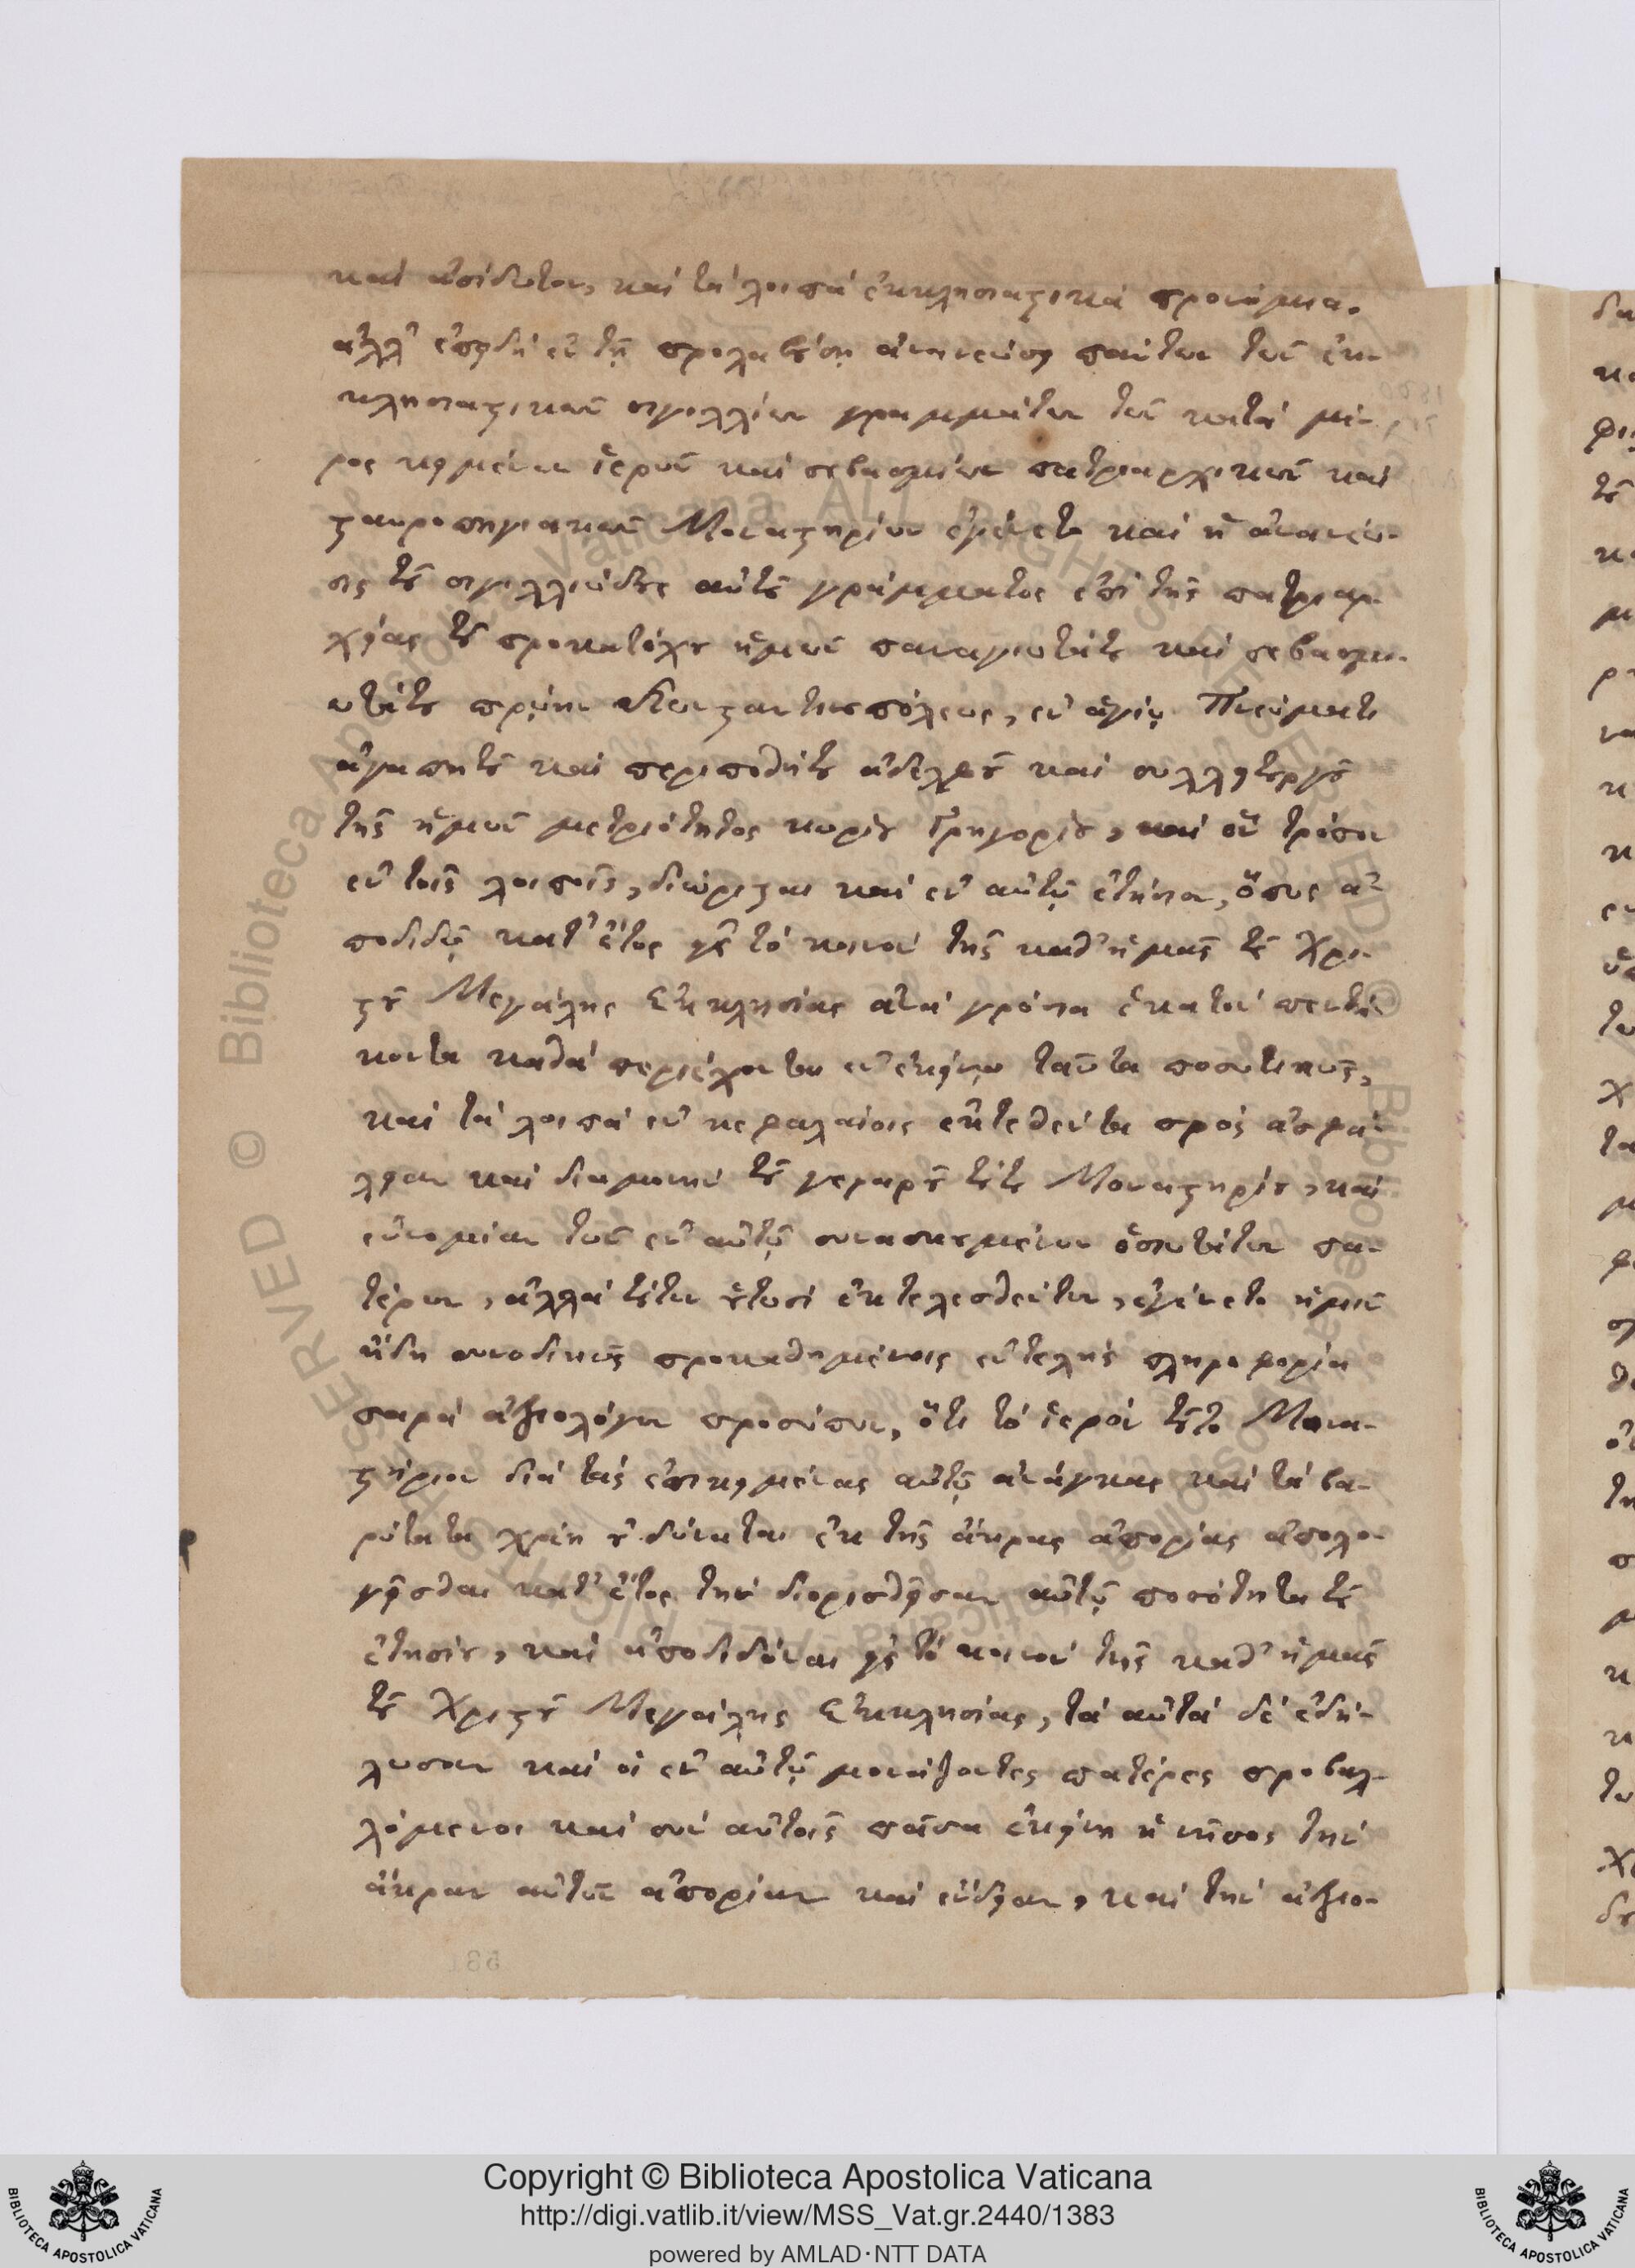 καὶ ἀσύδοτον, καὶ τὰ λοιπὰ ἐκκλησιαστικὰ προνόμια.
ἀλλ' ἐπειδὴ ἐν τῇ προλαβούσῃ ἀνανεώσει πάντων τῶν ἐκ-
κλησιαστικῶν σιγιλλίων γραμμάτων τῶν κατὰ μέ-
ρος κειμένων ἱερῶν καὶ σεβασμίων πατριαρχικῶν καὶ
σταυροπηγιακῶν Μοναστηρίων ἐγένετο καὶ ἡ ἀνανέω-
σις τοῦ σιγιλλιώδους αὐτοῦ γράμματος ἐπὶ τῆς πατριαρ-
χείας τοῦ προκατόχου ἡμῶν παναγιωτάτου καὶ σεβασμι-
ωτάτου πρώην Κωνσταντινουπόλεως, ἐν ἁγίῳ Πνεύματι
ἀγαπητοῦ καὶ περιποθήτου ἀδελφοῦ καὶ συλλειτουργοῦ
τῆς ἡμῶν μετριότητος κυρίου Γρηγορίου, καὶ ὃν τρόπον
ἐν τοῖς λοιποῖς, διώρισται καὶ ἐν αὐτῷ ἐτήσιον, ὅπως ἀ-
ποδιδῷ κατ' ἔτος εἰς τὸ κοινὸν τῆς καθ' ἡμᾶς τοῦ Χρι-
στοῦ Μεγάλης Ἐκκλησίας ἀνὰ γρόσια ἑκατὸν πεντή-
κοντα καθὰ περιέχονται ἐν ἐκείνῳ ταῦτα ποσοτικῶς,
καὶ τὰ λοιπὰ ἐν κεφαλαίοις ἐκτεθέντα πρὸς ἀσφά-
λειαν καὶ διαμονὴν τοῦ γεραροῦ τούτου Μοναστηρίου, καὶ
εὐνομίαν τῶν ἐν αὐτῷ συνασκουμένων ὁσιωτάτων πα-
τέρων, ἀλλὰ τούτων οὑτωσὶ ἐκτελεσθέντων, ἐγένετο ἡμῖν
ἤδη συνοδικῶς προκαθημένοις ἐντελὴς πληροφορία
παρὰ ἀξιολόγων προσώπων, ὅτι τὸ ἱερὸν τοῦτο Μονα-
στήριον διὰ τὰς ἐπικειμένας αὐτῷ ἀνάγκας καὶ τὰ βα-
ρύτατα χρέη οὐ δύναται ἐκ τῆς ἄκρας ἀπορίας ἀπολο-
γεῖσθαι κατ' ἔτος τὴν διορισθεῖσαν αὐτῷ ποσότητα τοῦ
ἐτησίου, καὶ ἀποδιδόναι εἰς τὸ κοινὸν τῆς καθ' ἡμᾶς
τοῦ Χριστοῦ Μεγάλης Ἐκκλησίας, τὰ αὐτὰ δὲ ἐδή-
λωσαν καὶ οἱ ἐν αὐτῷ μονάζοντες πατέρες προβαλ-
λόμενοι καὶ σὺν αὐτοῖς πᾶσα ἐκείνη ἡ νῆσος τὴν
ἄκραν αὐτῶν ἀπορίαν καὶ ἔνδειαν, καὶ τὴν ἀξιο-
Copyright © Biblioteca Apostolica Vaticana
http://digi.vatlib.it/view/MSS_Vat.gr.2440/1383
powered by AMLAD·NTT DATA